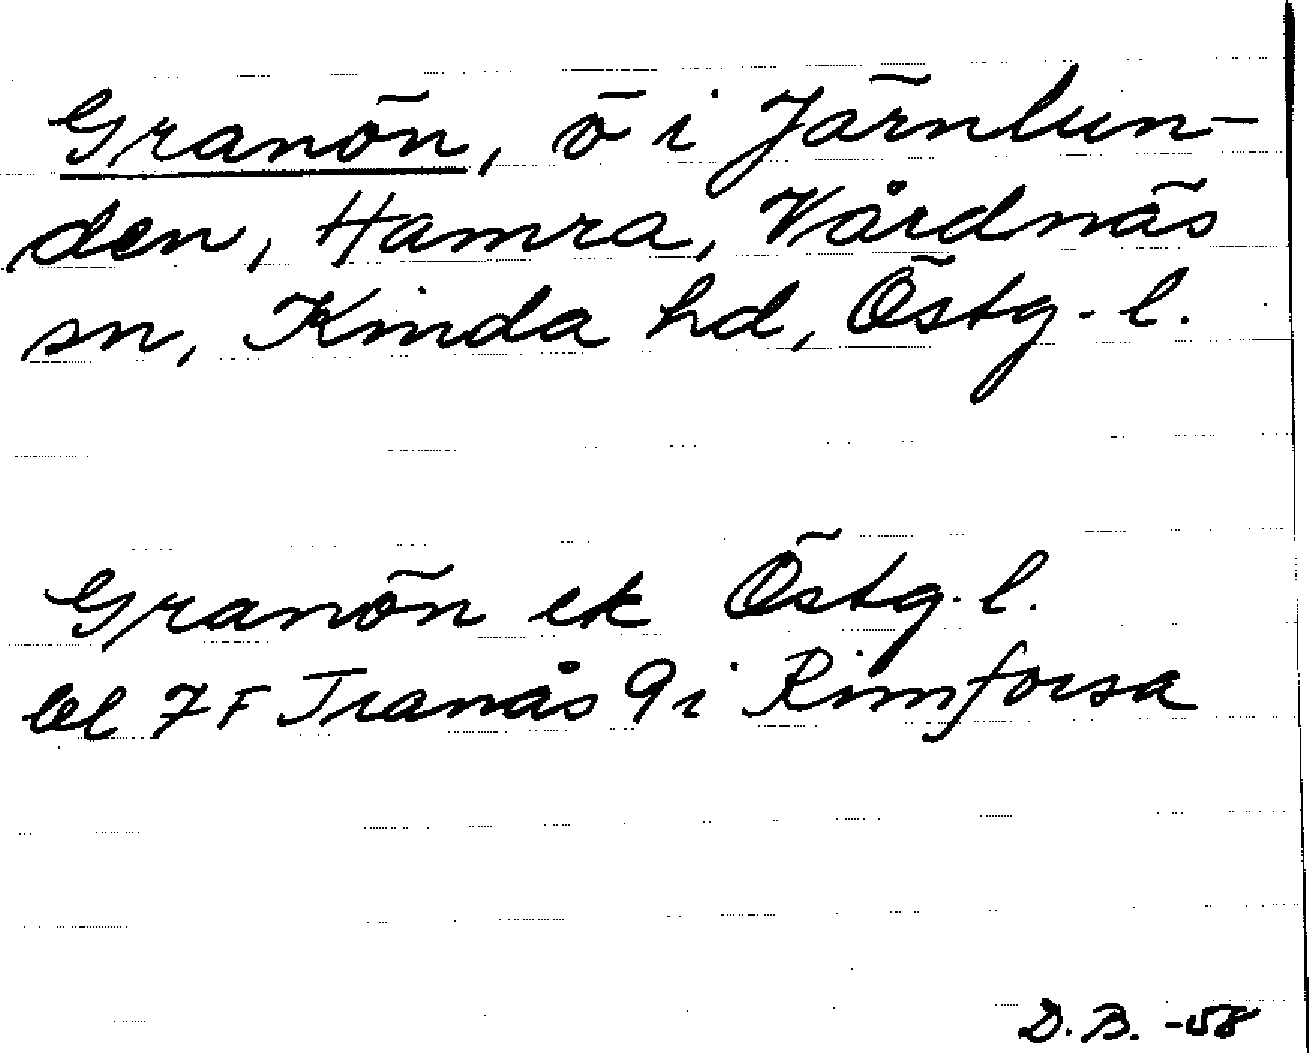 Granön, ö i Järnlun-
den, Hamra, Vårdnäs
sn, Kinda hd, Östg. l.
Granön ek Östg. l.
bl 7F Tranås 9i Rimforsa
D.B. -58